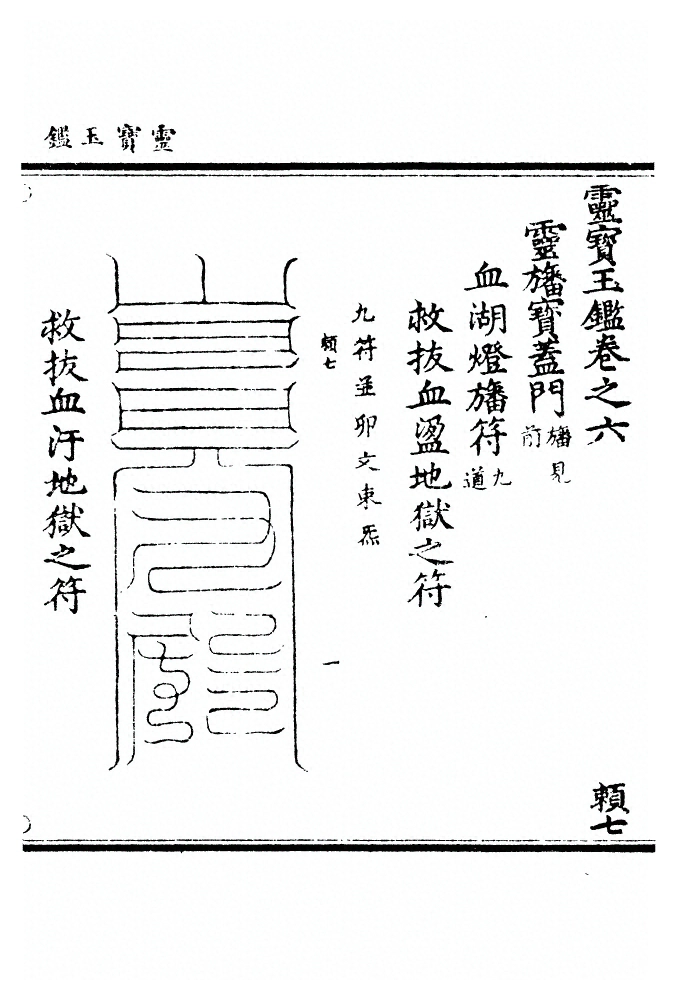 靈寶玉鑑
靈寶玉鑑卷之六
靈旛寶蓋門旛見前
血湖燈旛符九道
救拔血盪地獄之符
九符並卯文東炁
頼七
一
救拔血汙地獄之符
頼七